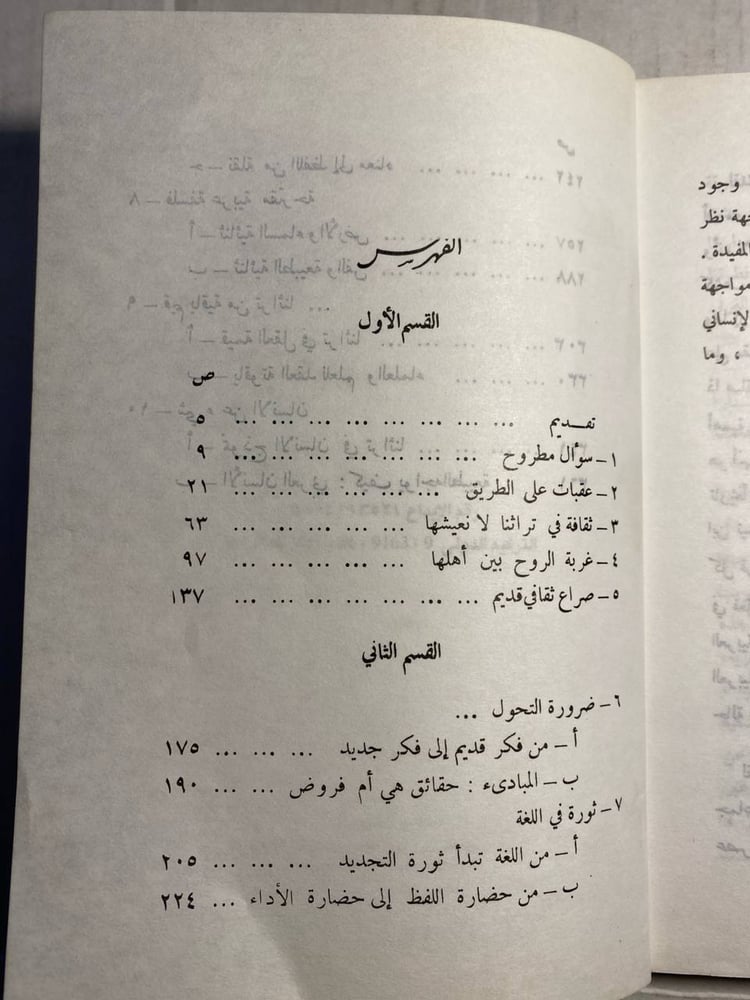 الفهرس
القسم الأول
ص
تقديم ... ... ... ... ... ... ... ... ٥
١ – سؤال مطروح ... ... ... ... ... ... ... ٩
٢ – عقبات على الطريق ... ... ... ... ... ... ٢١
٣ – ثقافة في تراثنا لا نعيشها ... ... ... ... ... ٦٣
٤ – غربة الروح بين أهلها ... ... ... ... ... ٩٧
٥ – صراع ثقافي قديم ... ... ... ... ... ... ... ١٣٧
القسم الثاني
٦ – ضرورة التحول ...
أ – من فكر قديم إلى فكر جديد ... ... ... ١٧٥
ب – المبادىء : حقائق هي أم فروض ... ... ١٩٠
٧ – ثورة في اللغة
أ – من اللغة تبدأ ثورة التجديد ... ... ... ٢٠٥
ب – من حضارة اللفظ إلى حضارة الأداء ... ٢٢٤
وجود
جهة نظر
المفيدة .
مواجهة
لإنساني
، وما